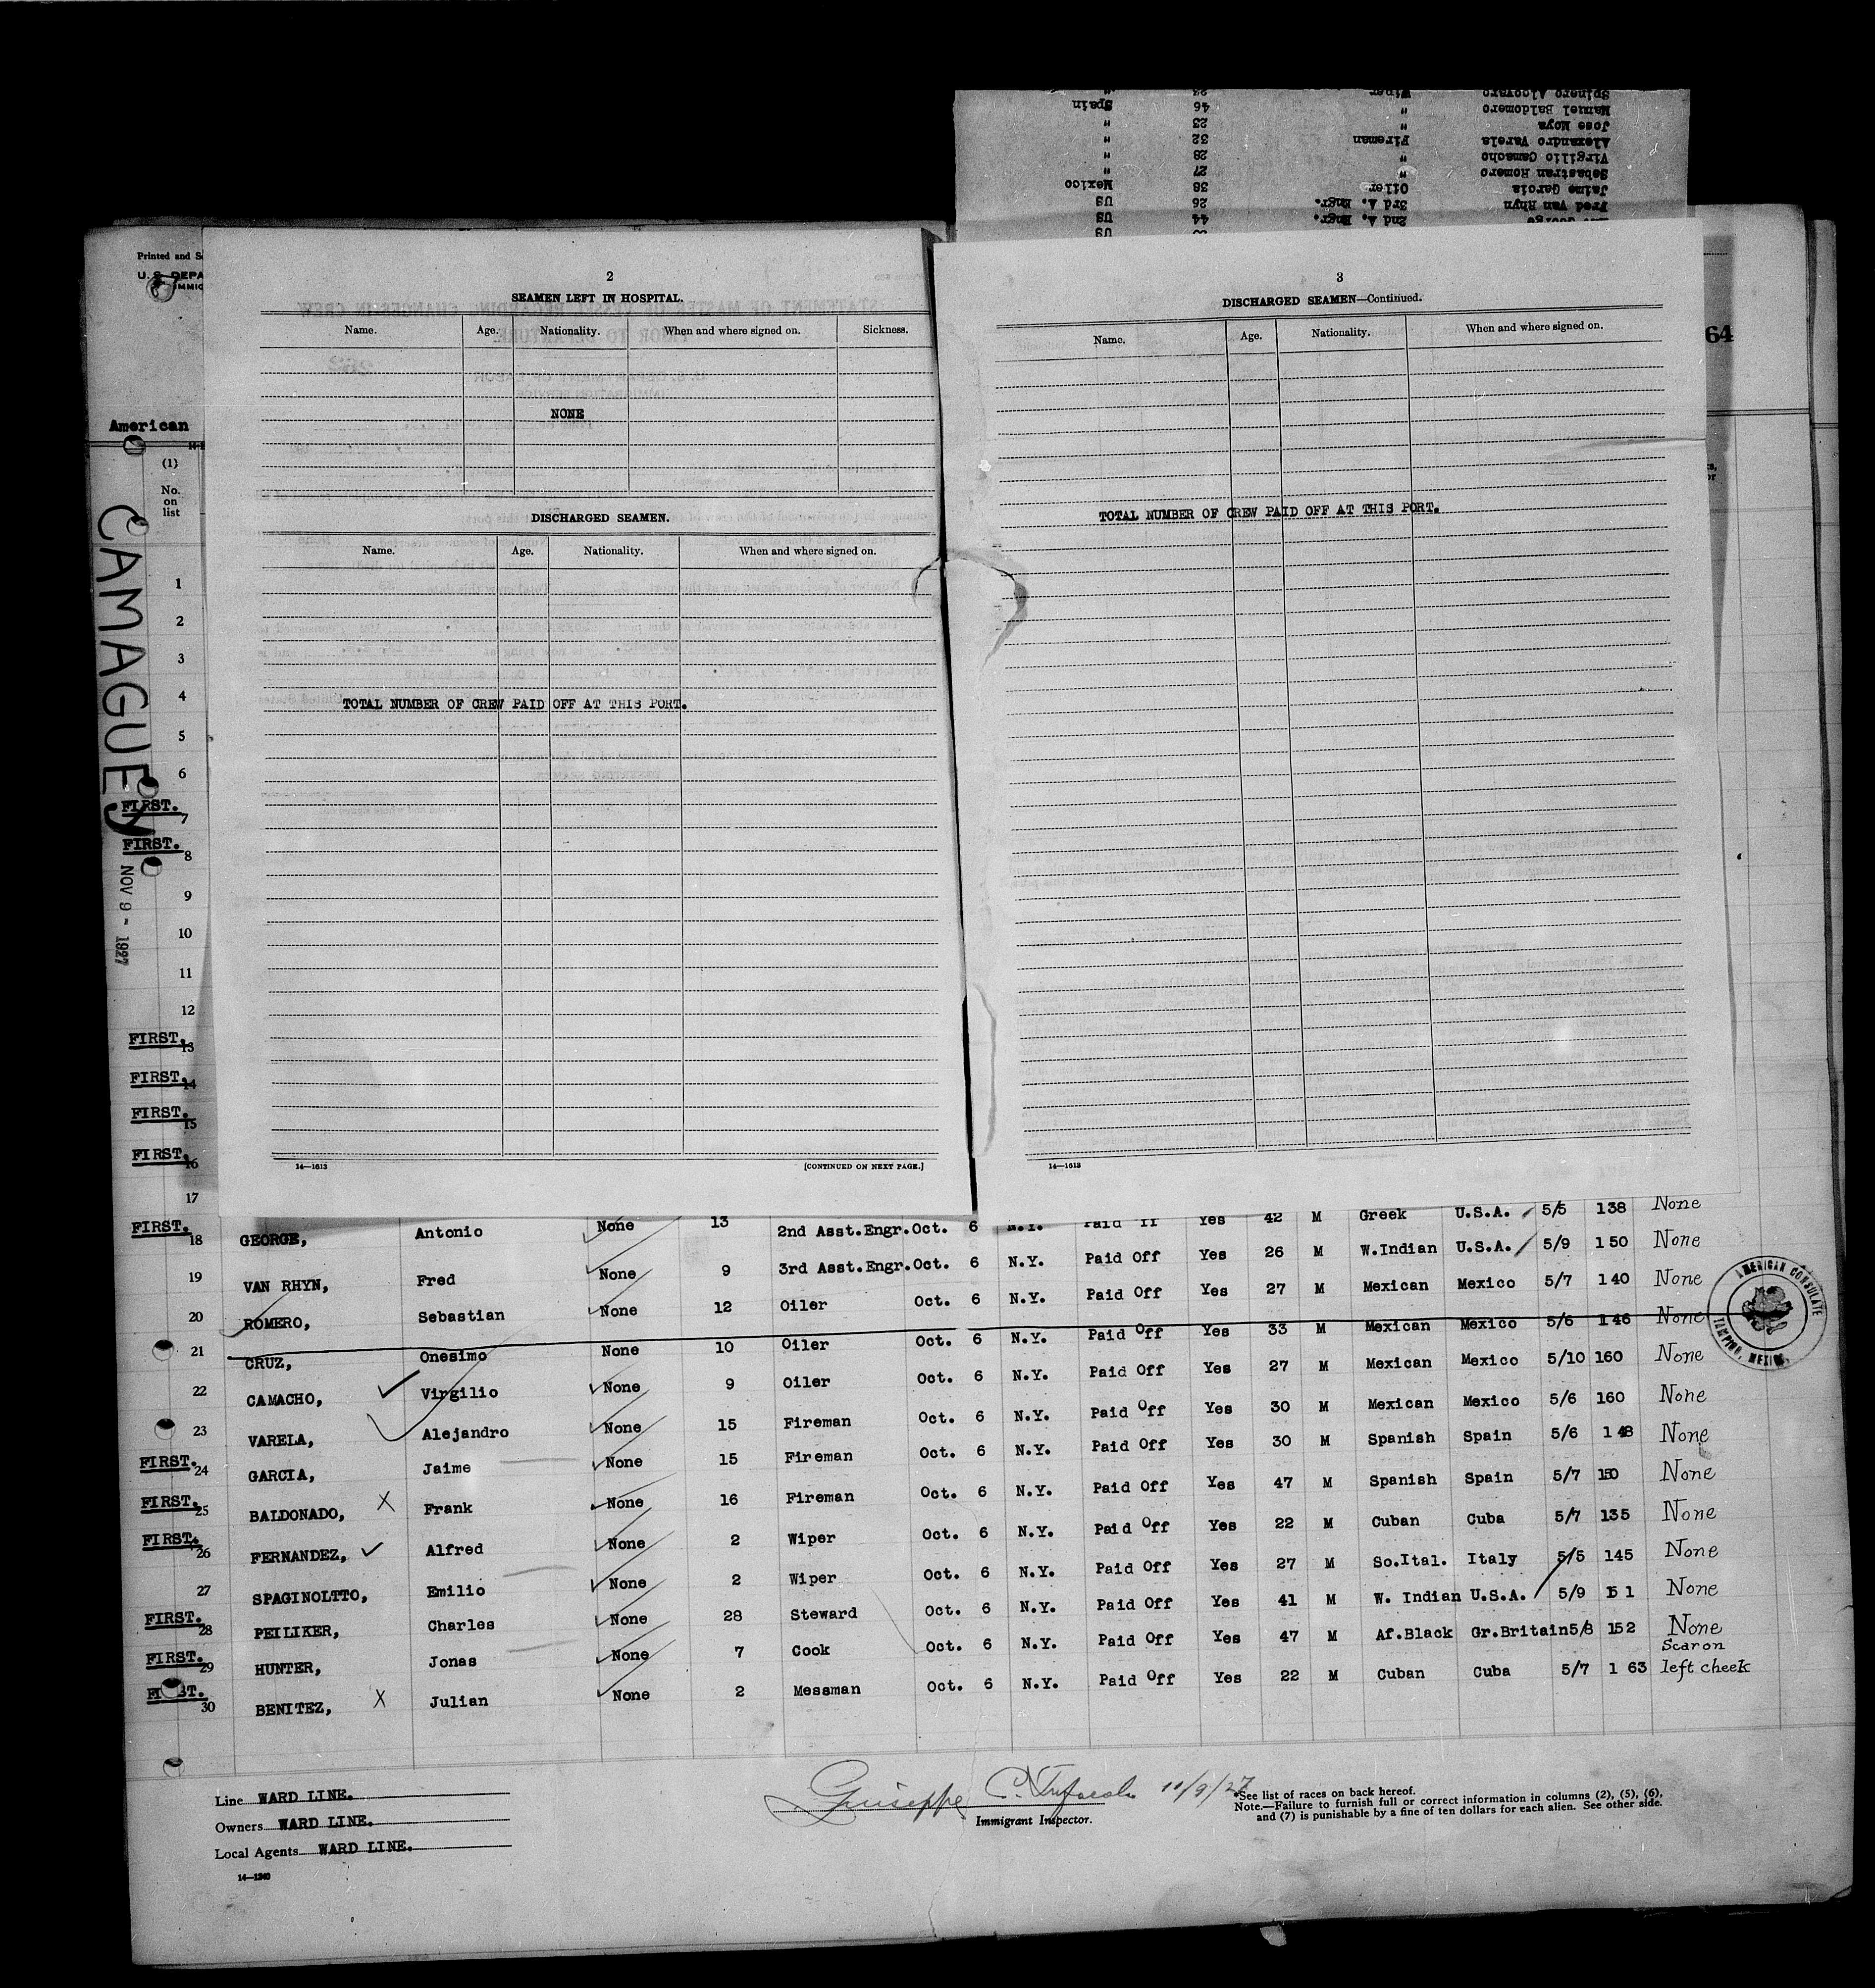 Spinero Alcovaro Wiper 23 "
Manuel Baldomero " 46 Spain
Jose Moya " 23 "
Alexandro Varela Fireman 32 "
Virgilio Camacho " 28 "
Sebastran Romero " 27 "
Jaime Garcia Oiler 38 Mexico
Fred Van Rhyn 3rd A. Engr. 26 US
George 2nd A. Engr. 44 US
US
Printed and S
U. S. DEPA
IMMIG
64
American
(1)
No.
on
list
CAMAGUEY
NOV 9 - 1927
2
SEAMEN LEFT IN HOSPITAL.
Name. Age. Nationality. When and where signed on. Sickness.
NONE
DISCHARGED SEAMEN.
Name. Age. Nationality. When and where signed on.
TOTAL NUMBER OF CREW PAID OFF AT THIS PORT.
14—1613 [CONTINUED ON NEXT PAGE.]
3
DISCHARGED SEAMEN—Continued.
Name. Age. Nationality. When and where signed on.
TOTAL NUMBER OF CREW PAID OFF AT THIS PORT.
14—1613
1
2
3
4
5
6
FIRST. 7
FIRST. 8
9
10
11
12
FIRST. 13
FIRST. 14
FIRST. 15
FIRST. 16
17
FIRST. 18 GEORGE, Antonio None 13 2nd Asst.Engr. Oct. 6 N.Y. Paid Off Yes 42 M Greek U.S.A. 5/5 138 None
19 VAN RHYN, Fred None 9 3rd Asst.Engr. Oct. 6 N.Y. Paid Off Yes 26 M W.Indian U.S.A. 5/9 150 None
20 ROMERO, Sebastian None 12 Oiler Oct. 6 N.Y. Paid Off Yes 27 M Mexican Mexico 5/7 140 None
21 CRUZ, Onesimo None 10 Oiler Oct. 6 N.Y. Paid Off Yes 33 M Mexican Mexico 5/6 146 None
22 CAMACHO, Virgilio None 9 Oiler Oct. 6 N.Y. Paid Off Yes 27 M Mexican Mexico 5/10 160 None
23 VARELA, Alejandro None 15 Fireman Oct. 6 N.Y. Paid Off Yes 30 M Mexican Mexico 5/6 160 None
FIRST. 24 GARCIA, Jaime None 15 Fireman Oct. 6 N.Y. Paid Off Yes 30 M Spanish Spain 5/6 148 None
FIRST. 25 BALDONADO, X Frank None 16 Fireman Oct. 6 N.Y. Paid Off Yes 47 M Spanish Spain 5/7 150 None
FIRST. 26 FERNANDEZ, Alfred None 2 Wiper Oct. 6 N.Y. Paid Off Yes 22 M Cuban Cuba 5/7 135 None
27 SPAGINOLTTO, Emilio None 2 Wiper Oct. 6 N.Y. Paid Off Yes 27 M So.Ital. Italy 5/5 145 None
FIRST. 28 PEILIKER, Charles None 28 Steward Oct. 6 N.Y. Paid Off Yes 41 M W. Indian U.S.A. 5/9 151 None
FIRST. 29 HUNTER, Jonas None 7 Cook Oct. 6 N.Y. Paid Off Yes 47 M Af.Black Gr.Britain 5/8 152 None
FIRST. 30 BENITEZ, X Julian None 2 Messman Oct. 6 N.Y. Paid Off Yes 22 M Cuban Cuba 5/7 163 Scar on left cheek
AMERICAN CONSULATE
TAMPICO, MEXICO.
Line WARD LINE.
Owners WARD LINE.
Local Agents WARD LINE.
14—1240
Giuseppe C. 11/9/27
Immigrant Inspector.
*See list of races on back hereof.
Note.—Failure to furnish full or correct information in columns (2), (5), (6),
and (7) is punishable by a fine of ten dollars for each alien. See other side.